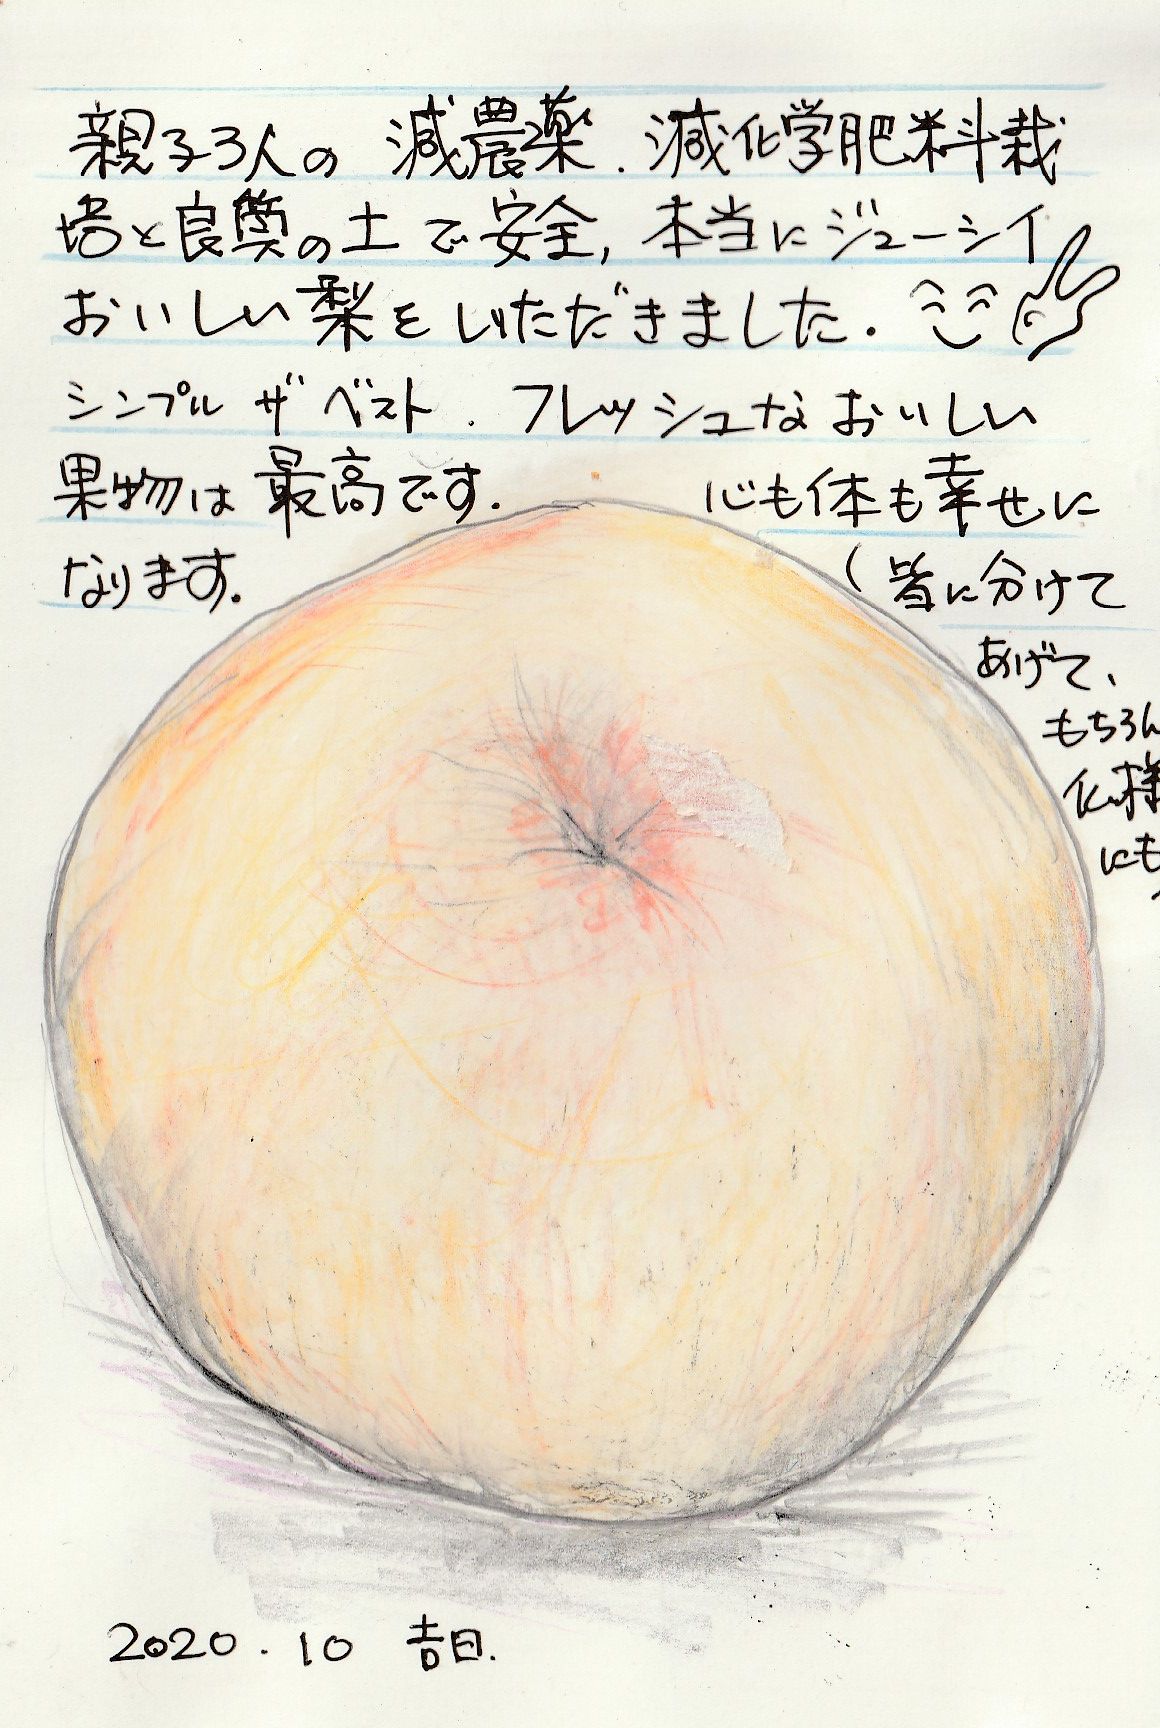 親子3人の 減農薬.減化学肥料栽
培と良質の土で安全,本当にジューシイ
おいしい梨をいただきました.
シンプル ザ ベスト.フレッシュなおいしい
果物は最高です. 心も体も幸せに
なります. (皆に分けて
あげて、
もちろん
仏様
にも)
2020.10 吉日.